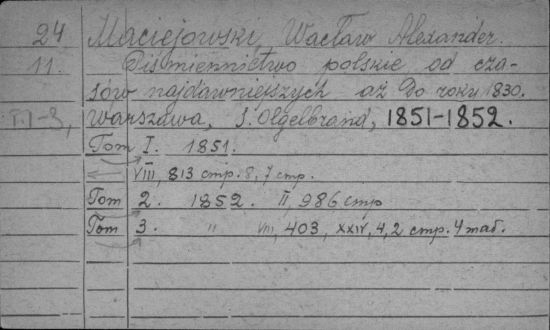 24 Maciejowski, Wacław Alexander.
11. Piśmiennictwo polskie od cza-
sów najdawniejszych aż do roku 1830.
I-3, Warszawa, S. Olgelbrand, 1851-1852.
Tom I. 1851.
VIII, 813 стр. 8, 7 стр.
Tom 2. 1852. II, 986 стр
Tom 3. " VIII, 403, XXIV, 4, 2 стр. 4 таб.